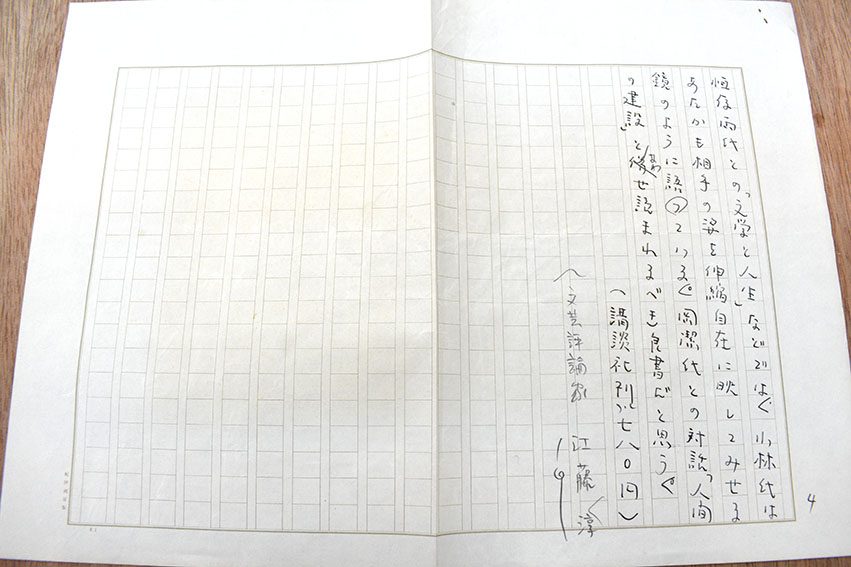 恒存両氏との「文学と人生」などでは、小林氏は
あたかも相手の姿を伸縮自在に映してみせる
鏡のように語っている。岡潔氏との対話「人間
の建設」と併せ読まれるべき良書だと思う。
(講談社刊・七八〇円)
(文芸評論家 江藤 淳)
4